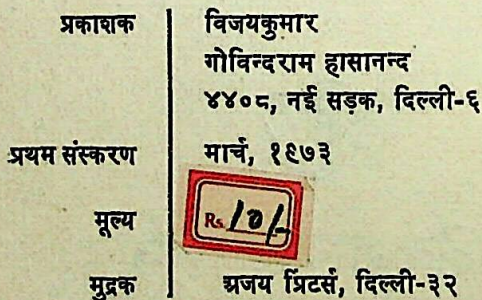 प्रकाशक विजयकुमार
गोविन्दराम हासानन्द
४४०८, नई सड़क, दिल्ली-६
प्रथम संस्करण मार्च, १९७३
मूल्य Rs. 10/-
मुद्रक अजय प्रिंटर्स, दिल्ली-३२